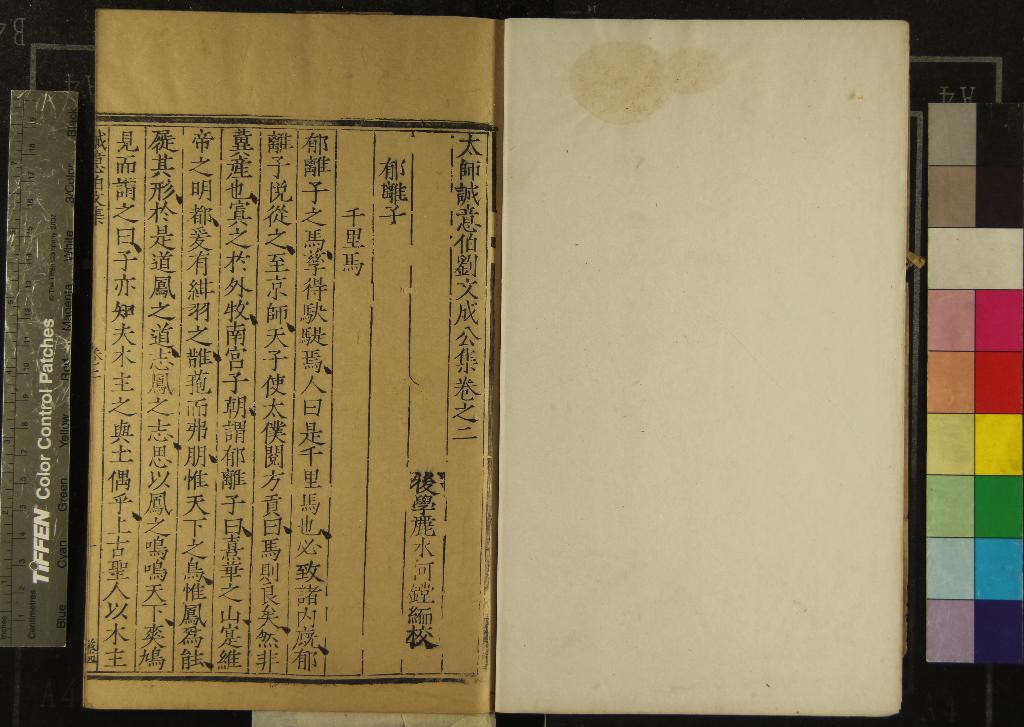 太師誠意伯劉文成公集卷之二
後學麗水何鏜編校
郁離子
千里馬
郁離子之馬孳得駃騠焉人曰是千里馬也必致諸內廐郁
離子悅從之至京師天子使太僕閱方貢曰馬則良矣然非
冀產也寘之於外牧南宮子朝謂郁離子曰熹華之山寔維
帝之明都爰有紺羽之鵲菢而弗朋惟天下之鳥惟鳳爲能
屣其形於是道鳳之道志鳳之志思以鳳之鳴鳴天下奭鳩
見而謂之曰子亦知夫木主之與土偶乎上古聖人以木主
誠意伯文集
卷二
TIFFEN Color Control Patches
© The Tiffen Company, 2002
Centimetres
Inches
Blue
Cyan
Green
Yellow
Red
Magenta
White
3/Color
Black
A4
A4
B4
A4